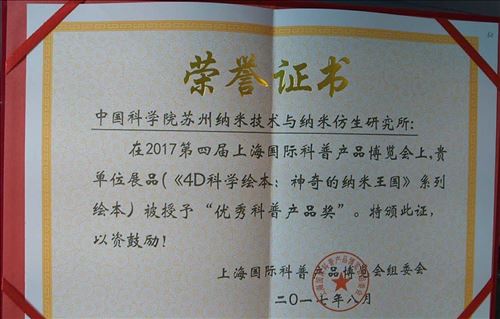 荣誉证书
中国科学院苏州纳米技术与纳米仿生研究所:
在2017第四届上海国际科普产品博览会上,贵
单位展品(《4D科学绘本:神奇的纳米王国》系列
绘本)被授予“优秀科普产品奖”。特颁此证,
以资鼓励!
上海国际科普产品博览会组委会
二〇一七年八月